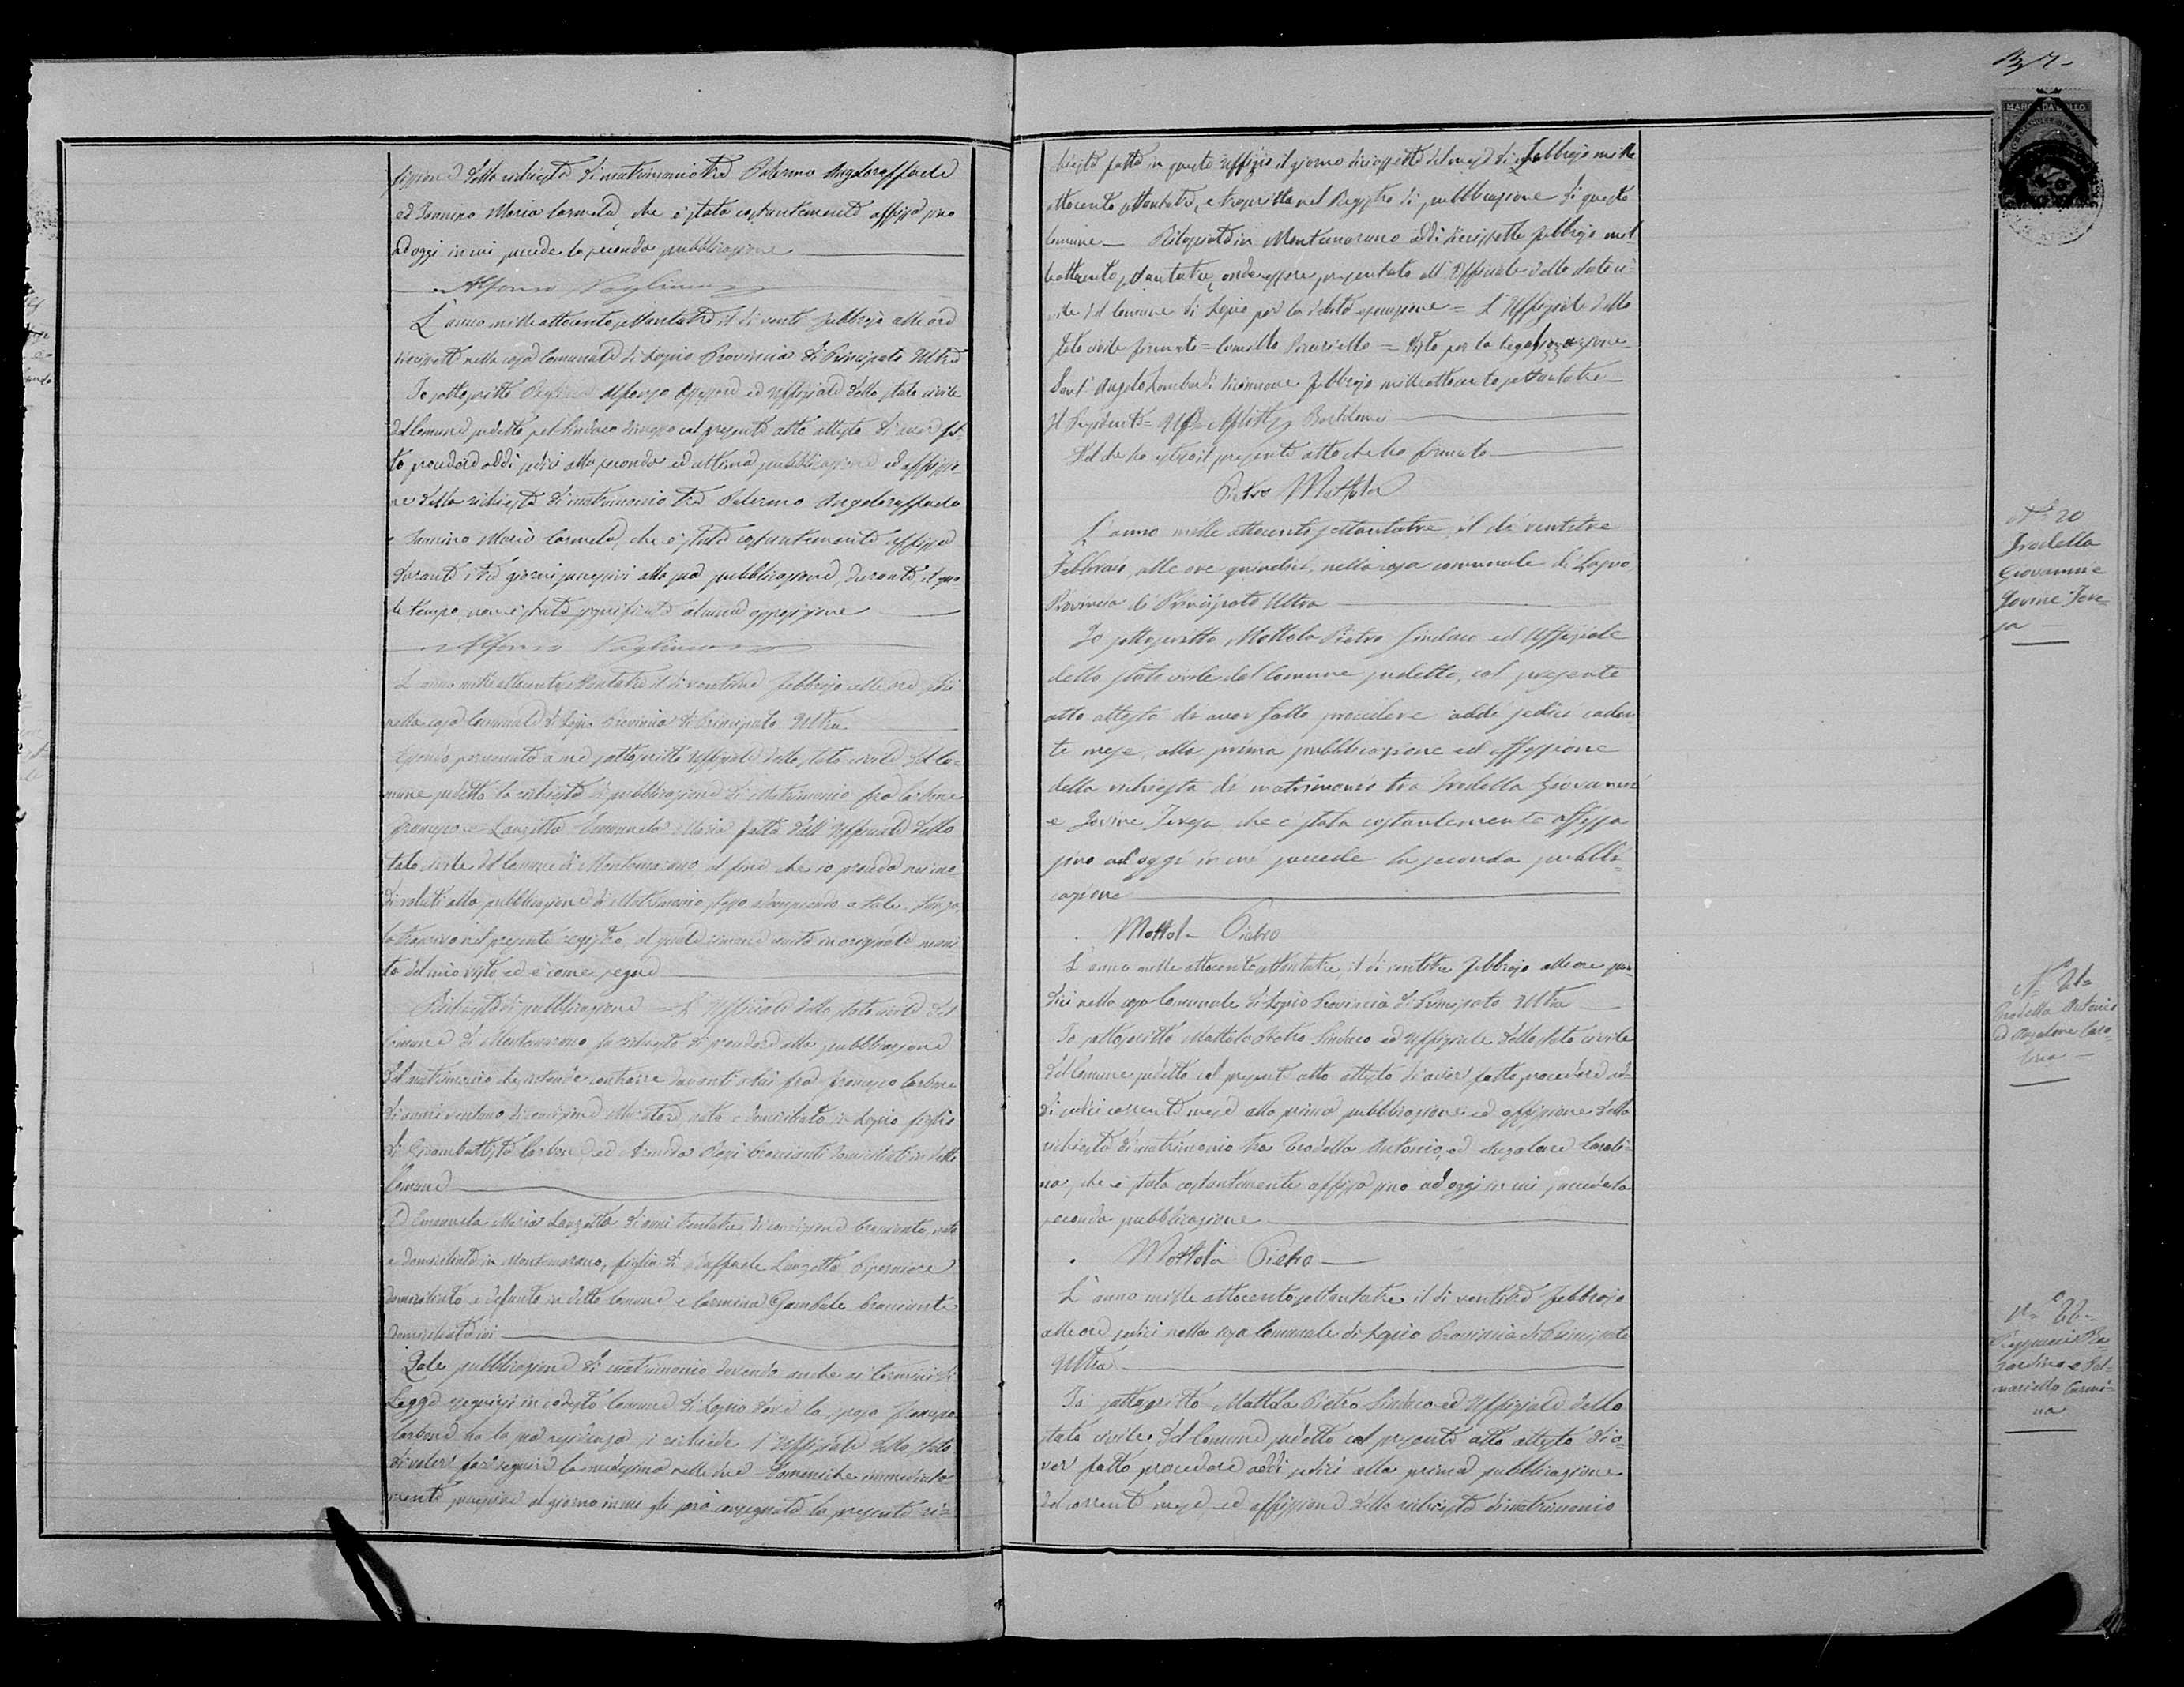 fissione della richiesta di matrimonio tra Palermo Angeloraffaele
ed Iannino Maria Carmela, che è stata costantemente affissa sino
ad oggi in cui succede la seconda pubblicazione
Alfonso Pagliuca
L'anno mille ottocento settantatre il dì venti Febbrajo alle ore
diecisette nella casa Comunale di Lapio Provincia di Principato Ultra
Io sottoscritto Alfonso Assessore ed Uffiziale dello stato civile
del Comune sudetto pel Sindaco col presente atto attesto di aver fat-
to procedere addì sedici alla seconda ed ultima pubblicazione ed affissio-
ne della richiesta di matrimonio tra Palermo Angeloraffaele
e Iannino Maria Carmela, che è stata costantemente affissa
durante i tre giorni successivi alla sua pubblicazione, durante il qua-
le tempo, non è stata significata alcuna opposizione
Alfonso Pagliuca
L'anno mille ottocento settantatre il dì ventuno Febbrajo alle ore
nella casa Comunale di Lapio Provincia di Principato Ultra
Essendo pervenuta a me sottoscritto Uffiziale dello stato civile del Co-
mune sudetto la richiesta di pubblicazione di Matrimonio fra Carbone
Francesco e Lanzetta Emanuela Maria fatta dall'Uffiziale dello
stato civile del Comune di Montemarano al fine che io proceda nei mo-
di voluti alla pubblicazione di Matrimonio stesso, adempiendo a tale istanza,
la trascrivo nel presente registro, al quale rimane unita in originale muni-
ta del mio visto ed è come segue
Richiesta di pubblicazione = L'Uffiziale dello stato civile del
Comune di Montemarano fa richiesta di procedere alla pubblicazione
del matrimonio che intende contrarre davanti a lui fra Francesco Carbone
di anni ventuno, di condizione nato e domiciliato in Lapio figlio
di Giovambattista Carbone, ed braccianti domiciliati in detto
Comune
Ed Emanuela Maria Lanzetta di anni trentatre di condizione bracciante, nata
e domiciliata in Montemarano, figlia di Raffaele Lanzetta
domiciliato e defunto in detto Comune, e Carmina Gambale bracciante
domiciliata ivi
Tale pubblicazione di matrimonio dovendo anche ai termini di
Legge eseguirsi in codesto Comune di Lapio dove lo sposo Francesco
Carbone ha la sua residenza si richiede l'Uffiziale dello stato
di voler far seguire la medesima nelle due Domeniche immediata-
mente successive al giorno in cui gli sarà consegnata la presente ri-
chiesta fatta in questo Uffizio il giorno diciassette del mese di Febbrajo mille
ottocento settantatre, e trascritta nel Registro di pubblicazione di questo
Comune — Rilasciata in Montemarano addì diecisette Febbrajo mil-
leottocento settantatre, onde essere presentata all'Uffiziale dello stato ci-
vile del Comune di Lapio per la debita esecuzione = L'Uffiziale dello
stato civile firmato = Camillo = Visto per la legalizzazione
Sant'Angelo Lombardi diecinnove Febbrajo mille ottocento settantatre
Il Presidente =
Del che ho esteso il presente atto che ho firmato
Pietro Mottola
L'anno mille ottocento settantatre, il dì ventitre
Febbraio, alle ore quindici, nella casa comunale di Lapio,
Provincia di Principato Ultra
Io sottoscritto Mottola Pietro Sindaco ed Uffiziale
dello stato civile del Comune sudetto, col presente
atto attesto di aver fatto procedere addì sedici caden-
te mese, alla prima pubblicazione ed affissione
della richiesta di matrimonio tra Trodella Giovanni
e Iovine Teresa che è stata costantemente affissa
sino ad oggi in cui succede la seconda pubbli-
cazione
Mottola Pietro
L'anno mille ottocento settantatre, il dì ventitre Febbrajo alle ore quin-
dici nella casa Comunale di Lapio Provincia di Principato Ultra
Io sottoscritto Mottola Pietro Sindaco ed Uffiziale dello stato civile
del Comune sudetto col presente atto attesto di aver fatto procedere ad-
dì sedici corrente mese alla prima pubblicazione ed affissione della
richiesta di matrimonio tra Trodella Antonio, ed Anzalone Caroli-
na, che è stata costantemente affissa sino ad oggi in cui succede la
seconda pubblicazione
Mottola Pietro
L'anno mille ottocento settantatre il dì ventitre Febbrajo
alle ore sedici nella casa Comunale di Lapio Provincia di Principato
Ultra
Io sottoscritto Mottola Pietro Sindaco ed Uffiziale dello
stato civile del Comune sudetto col presente atto attesto di a-
ver fatto procedere addì sedici alla prima pubblicazione
del corrente mese ed affissione della richiesta di matrimonio
MARCA DA BOLLO
N° 20
Trodella
Giovanni e
Iovine Tere-
sa
N° 21
Trodella Antonio
ed Anzalone Caro-
lina
N° 22
Carmi-
na